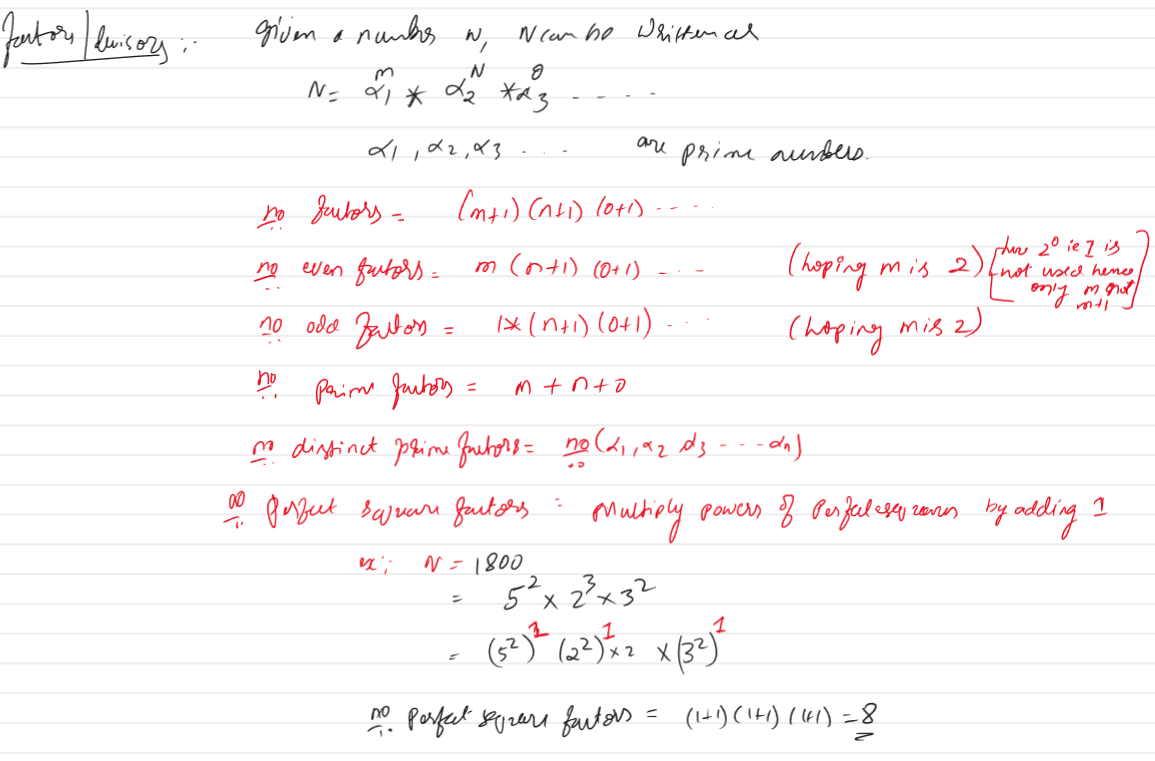 factors/divisors :- given a number N, N can be written as
N = α₁^m * α₂^N * α₃^o - - - - -
α₁, α₂, α₃ - - - are prime numbers.
no factors = (m+1) (n+1) (o+1) - - - -
no even factors = m (n+1) (o+1) - - - - (hoping m is 2) [ 2⁰ ie 1 is
not used hence
only m not
m+1 ]
no odd factors = 1* (n+1) (o+1) - - - (hoping m is 2)
no prime factors = m + n + o
no distinct prime factors = no (α₁, α₂ α₃ - - - - αn)
no Perfect square factors = Multiply powers of Perfect squares by adding 1
ex: N = 1800
= 5² × 2³ × 3²
= (5²)¹ (2²)¹ × 2 × (3²)¹
no Perfect square factors = (1+1) (1+1) (1+1) = 8